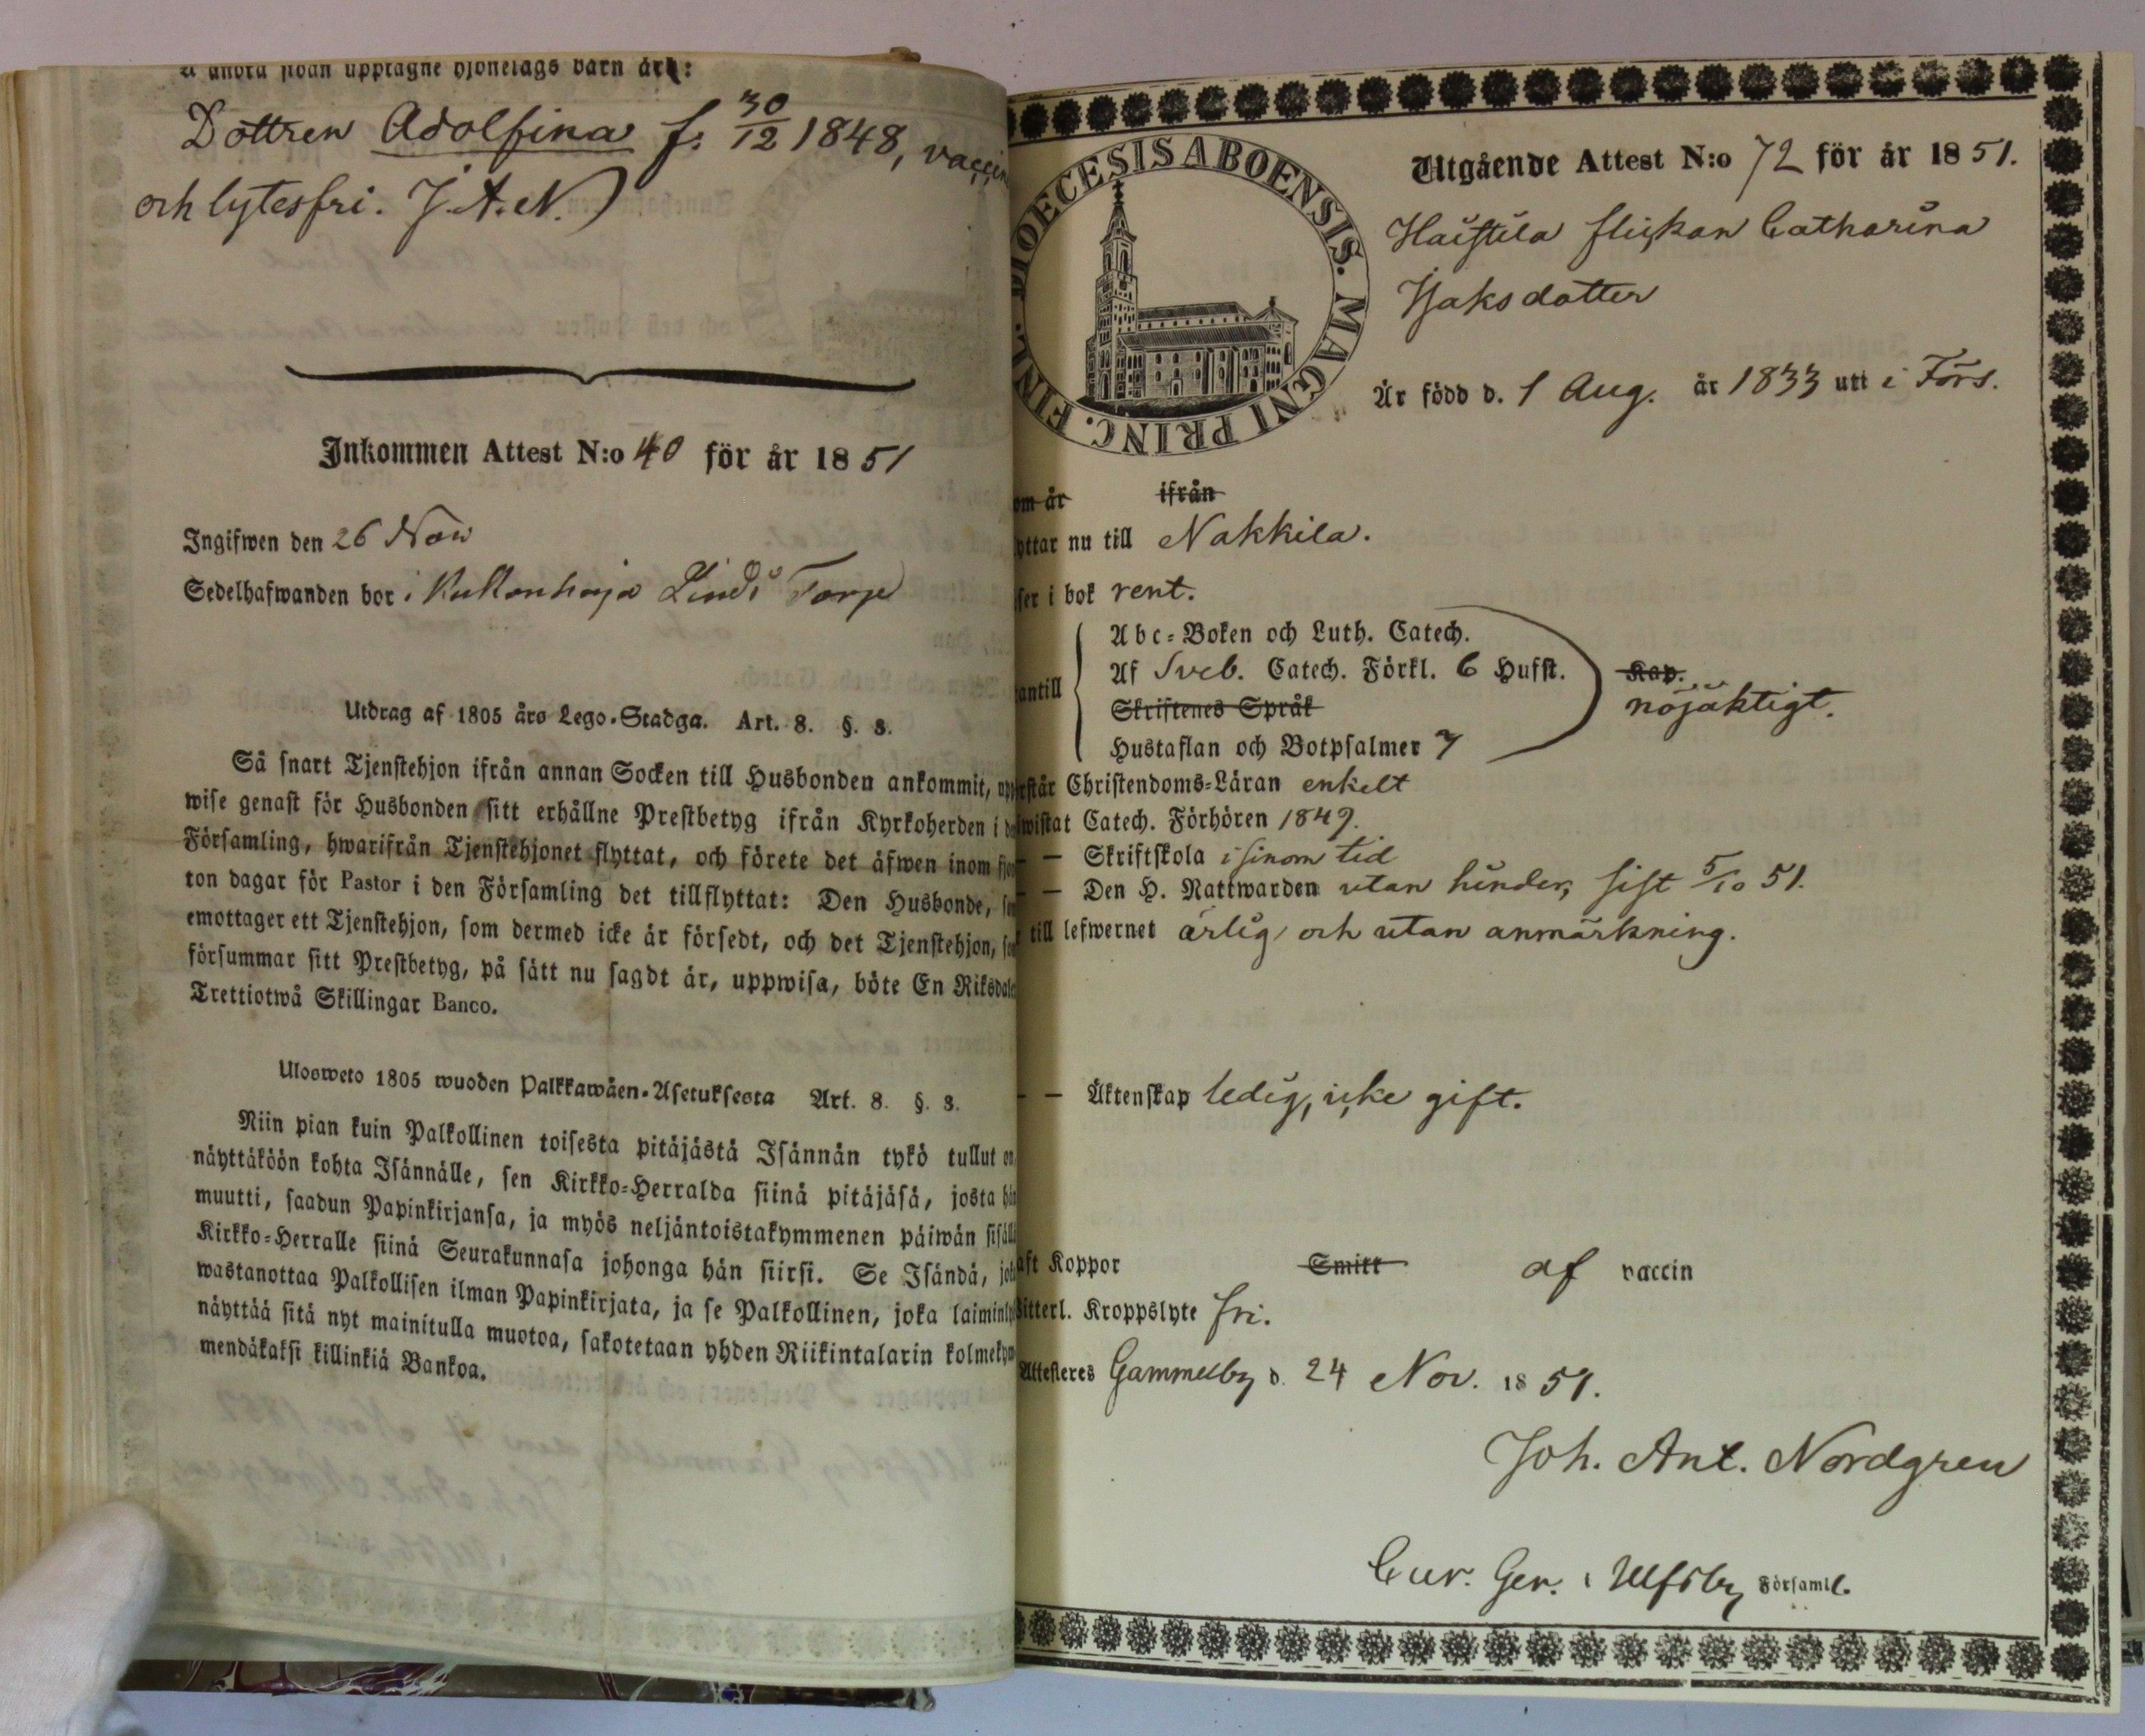 å andra sidan upptagne hjonelags barn är:
Dottren Adolfina f. 30/12 1848,
och lytesfri. J. A. N.)
Inkommen Attest N:o 40 för år 1851
Ingifwen den 26 Nov
Sedelhafwanden bor i Torp
Utdrag af 1805 års Lego-Stadga. Art. 8. §. 3.
Så snart Tjenstehjon ifrån annan Socken till Husbonden ankommit, upp
wise genast för Husbonden sitt erhållne Prestbetyg ifrån Kyrkoherden i
Församling, hwarifrån Tjenstehjonet flyttat, och förete det äfwen inom fjor
ton dagar för Pastor i den Församling det tillflyttat: Den Husbonde,
emottager ett Tjenstehjon, som dermed icke är försedt, och det Tjenstehjon,
försummar sitt Prestbetyg, på sätt nu sagdt är, uppwisa, böte En Riksdale
Trettiotwå Skillingar Banco.
Ulosweto 1805 wuoden Palkkawäen-Asetuksesta Art. 8. §. 3.
Niin pian kuin Palkollinen toisesta pitäjästä Isännän tykö tullut on
näyttäköön kohta Isännälle, sen Kirkko-Herralda siinä pitäjäsä, josta hän
muutti, saadun Papinkirjansa, ja myös neljäntoistakymmenen päiwän sisäll
Kirkko-Herralle siinä Seurakunnasa johonga hän siirsi. Se Isändä, jok
wastanottaa Palkollisen ilman Papinkirjata, ja se Palkollinen, joka laiminly
näyttää sitä nyt mainitulla muotoa, sakotetaan yhden Riikintalarin kolmekym
mendäkaksi killinkiä Bankoa.
DIOECESIS ABOENSIS. MAGNI PRINC. FINL.
Utgående Attest N:o 72 för år 1851.
Haistila flickan Catharina
Isaksdotter
Är född d. 1 Aug. år 1833 uti i Förs.
om är ifrån
yttar nu till Nakkila.
ser i bok rent.
Abc-Boken och Luth. Catech.
Af Sveb. Catech. Förkl. 6 Hufst. Kap.
antill
Skriftenes Språk nöjaktigt.
Hustaflan och Botpsalmer 7
rstår Christendoms-Läran enkelt
wistat Catech. Förhören 1849.
— — Skriftskola i sinom tid
— — Den H. Nattwarden utan hinder, sist 5/10 51.
till lefwernet ärlig och utan anmärkning.
— — Äktenskap ledig, icke gift.
aft Koppor Smitt af vaccin
Bitterl. Kroppslyte fri.
Attesteres Gammelby d. 24 Nov. 1851.
Joh. Ant. Nordgren
Cur. Ger. i Ulfsby Församl.